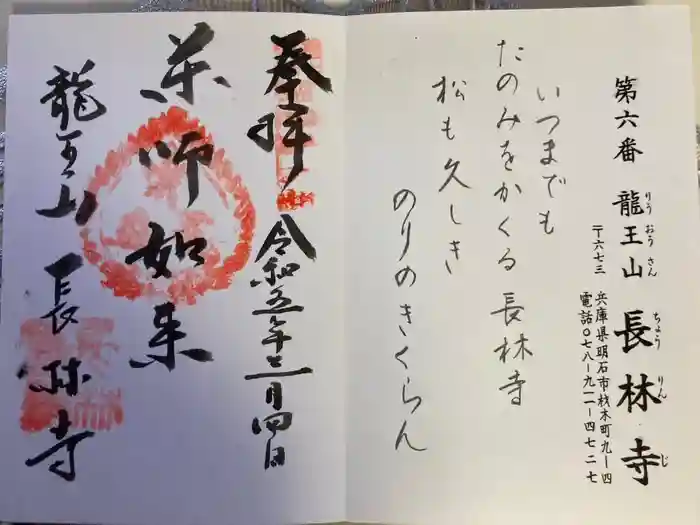 第六番 龍王山 長林寺
りゅうおうさん ちょうりんじ
〒六七三 兵庫県明石市材木町九ー四
電話〇七八ー九一一ー四七二七
いつまでも
たのみをかくる長林寺
松も久しき
のりのきくらん
奉拝
令和五年十二月四日
薬師如来
龍王山 長林寺